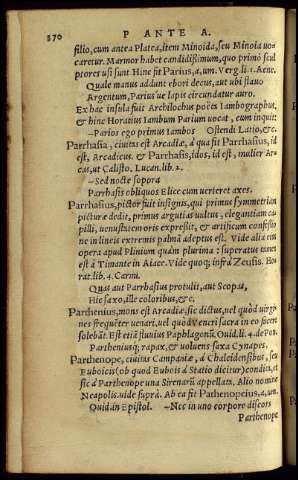 570 P ANTE A.
filio, cum antea Platea, item Minoida, seu Minoia uo
caretur. Marmor habet candidissimum, quo primò scul
ptores usi sunt Hinc fit Parius, a, um. Verg. li. 1. Aene.
Quale manus addunt ebori decus, aut ubi flauo
Argentum, Parius'ue lapis circundatur auro.
Ex hac insula fuit Archilochus poëta Iambographus,
& hinc Horatius Iambum Parium uocat, cum inquit
–Parios ego primus Iambos Ostendi Latio, &c.
Parrhasia, ciuitas est Arcadiæ, à qua fit Parrhasius, id
est, Arcadicus. & Parrhasis, idos, id est, mulier Arca
cas, ut Calisto. Lucan. lib. 2.
–Sed nocte sopora
Parrhasis obliquos Elice cum uerteret axes.
Parrhasius, pictor fuit insignis, qui primus symmetriam
picturæ dedit, primus argutias uultus, elegantiam ca
pilli, uenustatem oris expressit, & artificum confessio
ne in lineis extremis palmã adeptus est. Vide alia eius
opera apud Plinium quàm plurima: superatus tamen
est à Timante in Aiace. Vide quoq; infrà Zeusis. Ho
rat. lib. 4. Carm.
Quas aut Parrhasius protulit, aut Scopas,
Hic saxo, ille coloribus, &c.
Parthenius, mons est Arcadiæ, sic dictus, uel quòd uirgi
nes frequẽter uenari, uel quòd Veneri sacra in eo facere
solebãt. Est etiã fluuius Paphlagonũ. Ouid. li. 4. de Pon.
Partheniusq; rapax, & uoluens saxa Cynapes.
Parthenope, ciuitas Campaniæ, à Chalcidensibus, seu
Euboicis (ob quod Eubois à Statio dicitur) condita, et
sic à Parthenope una Sirenarũ appellata. Alio nomine
Neapolis. uide suprà. Ab ea fit Parthenopeius, a, um.
Ouid. in Epistol. –Nec in uno corpore discors
Parthenope